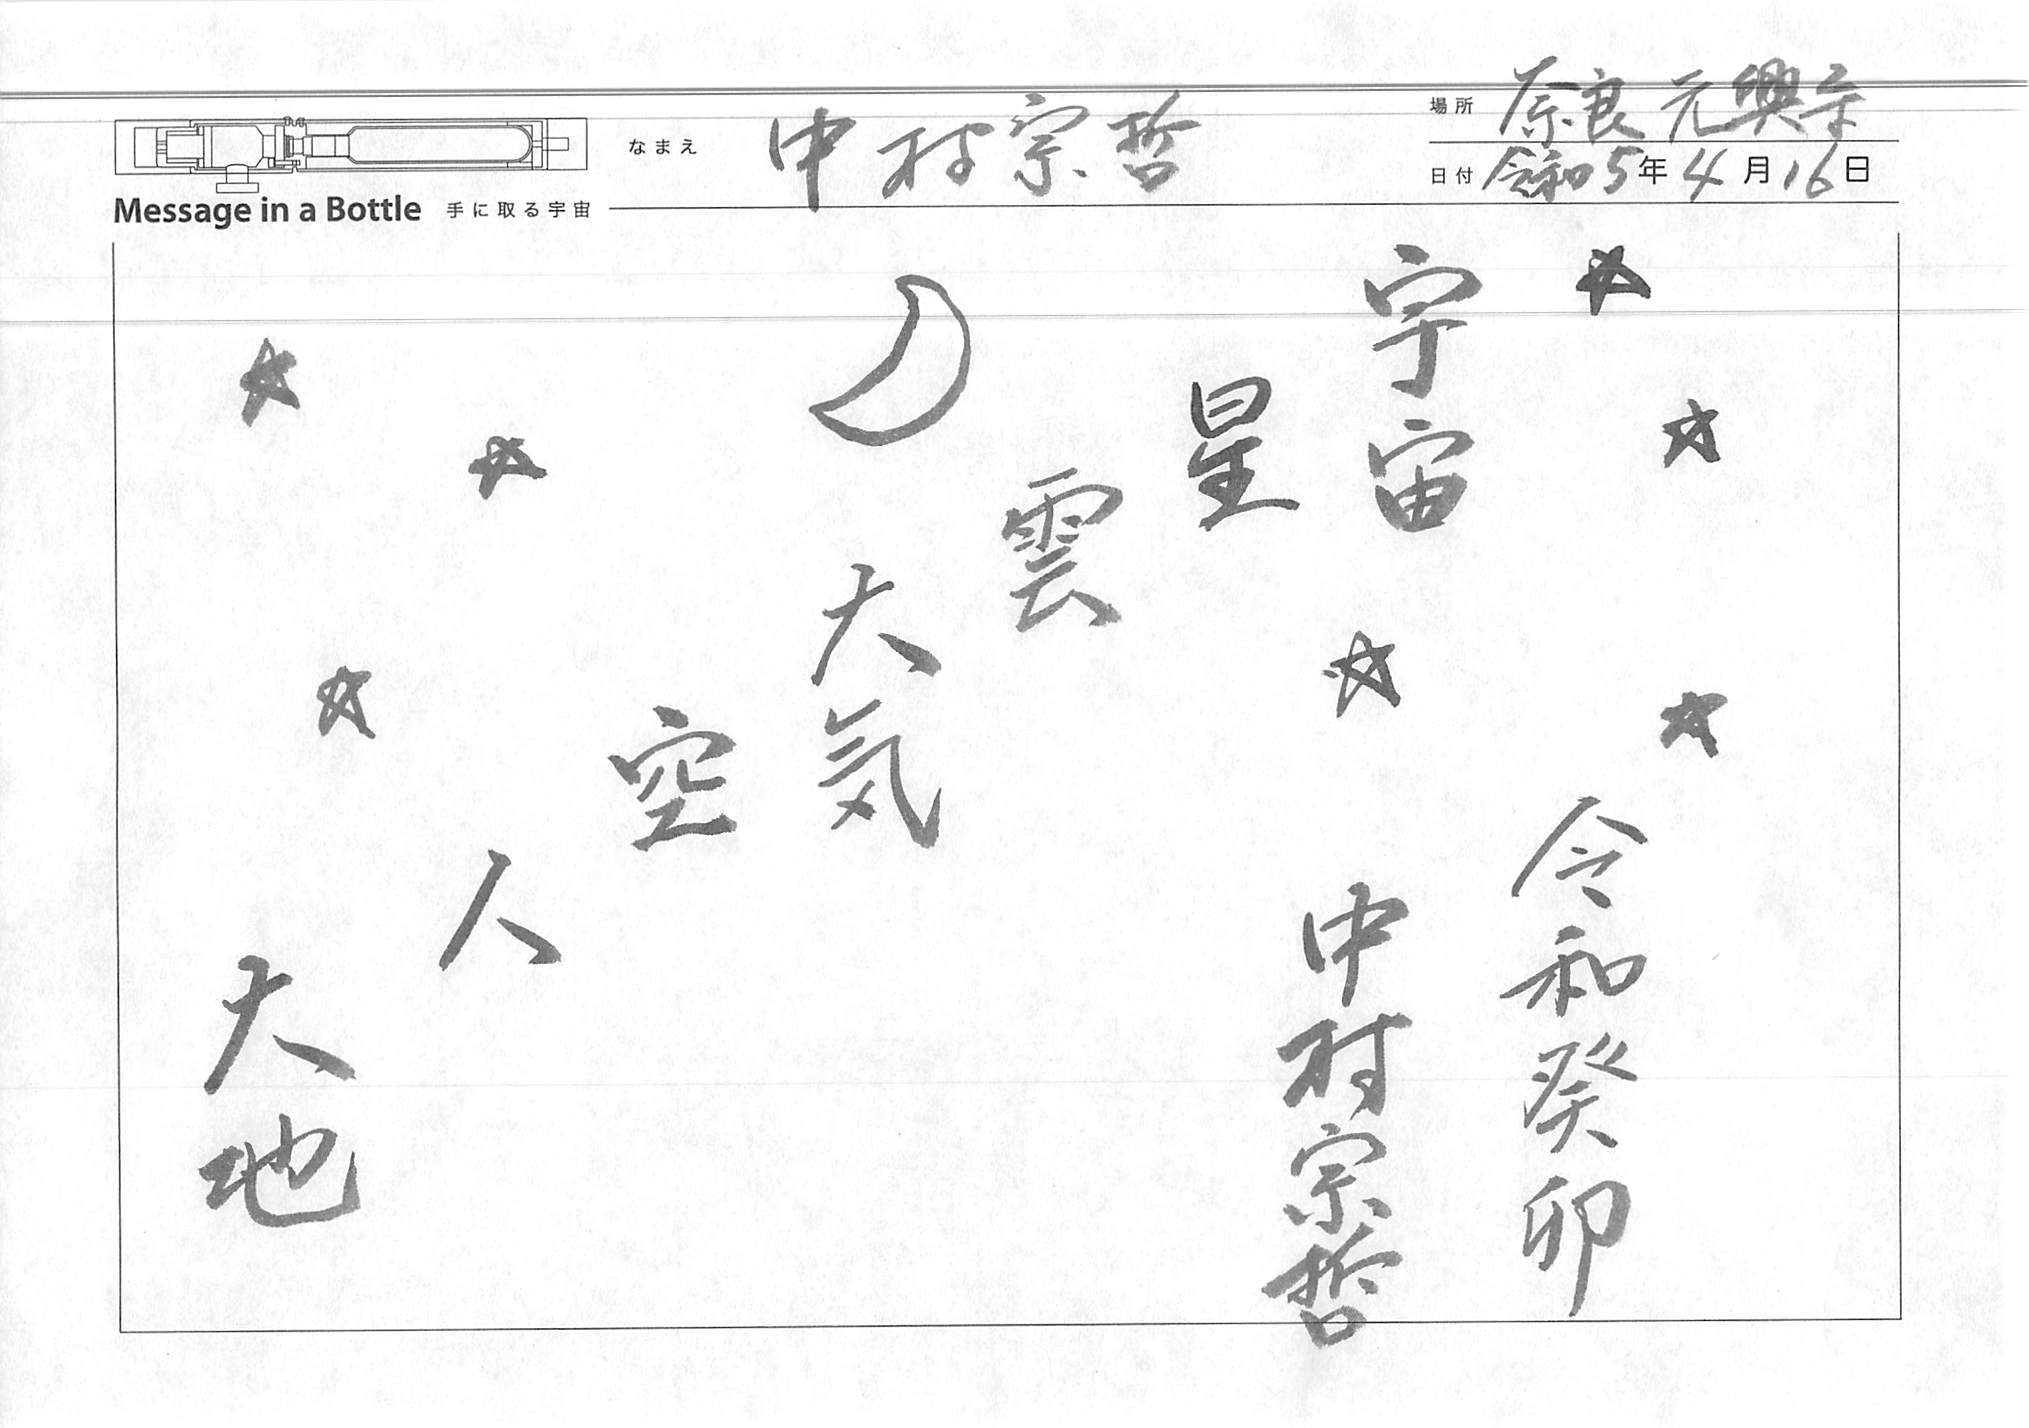 場所 奈良 元興寺
なまえ 中村宗哲
日付 令和5年4月16日
Message in a Bottle 手に取る宇宙
宇宙
星
雲
大気
空
人
大地
令和癸卯
中村宗哲